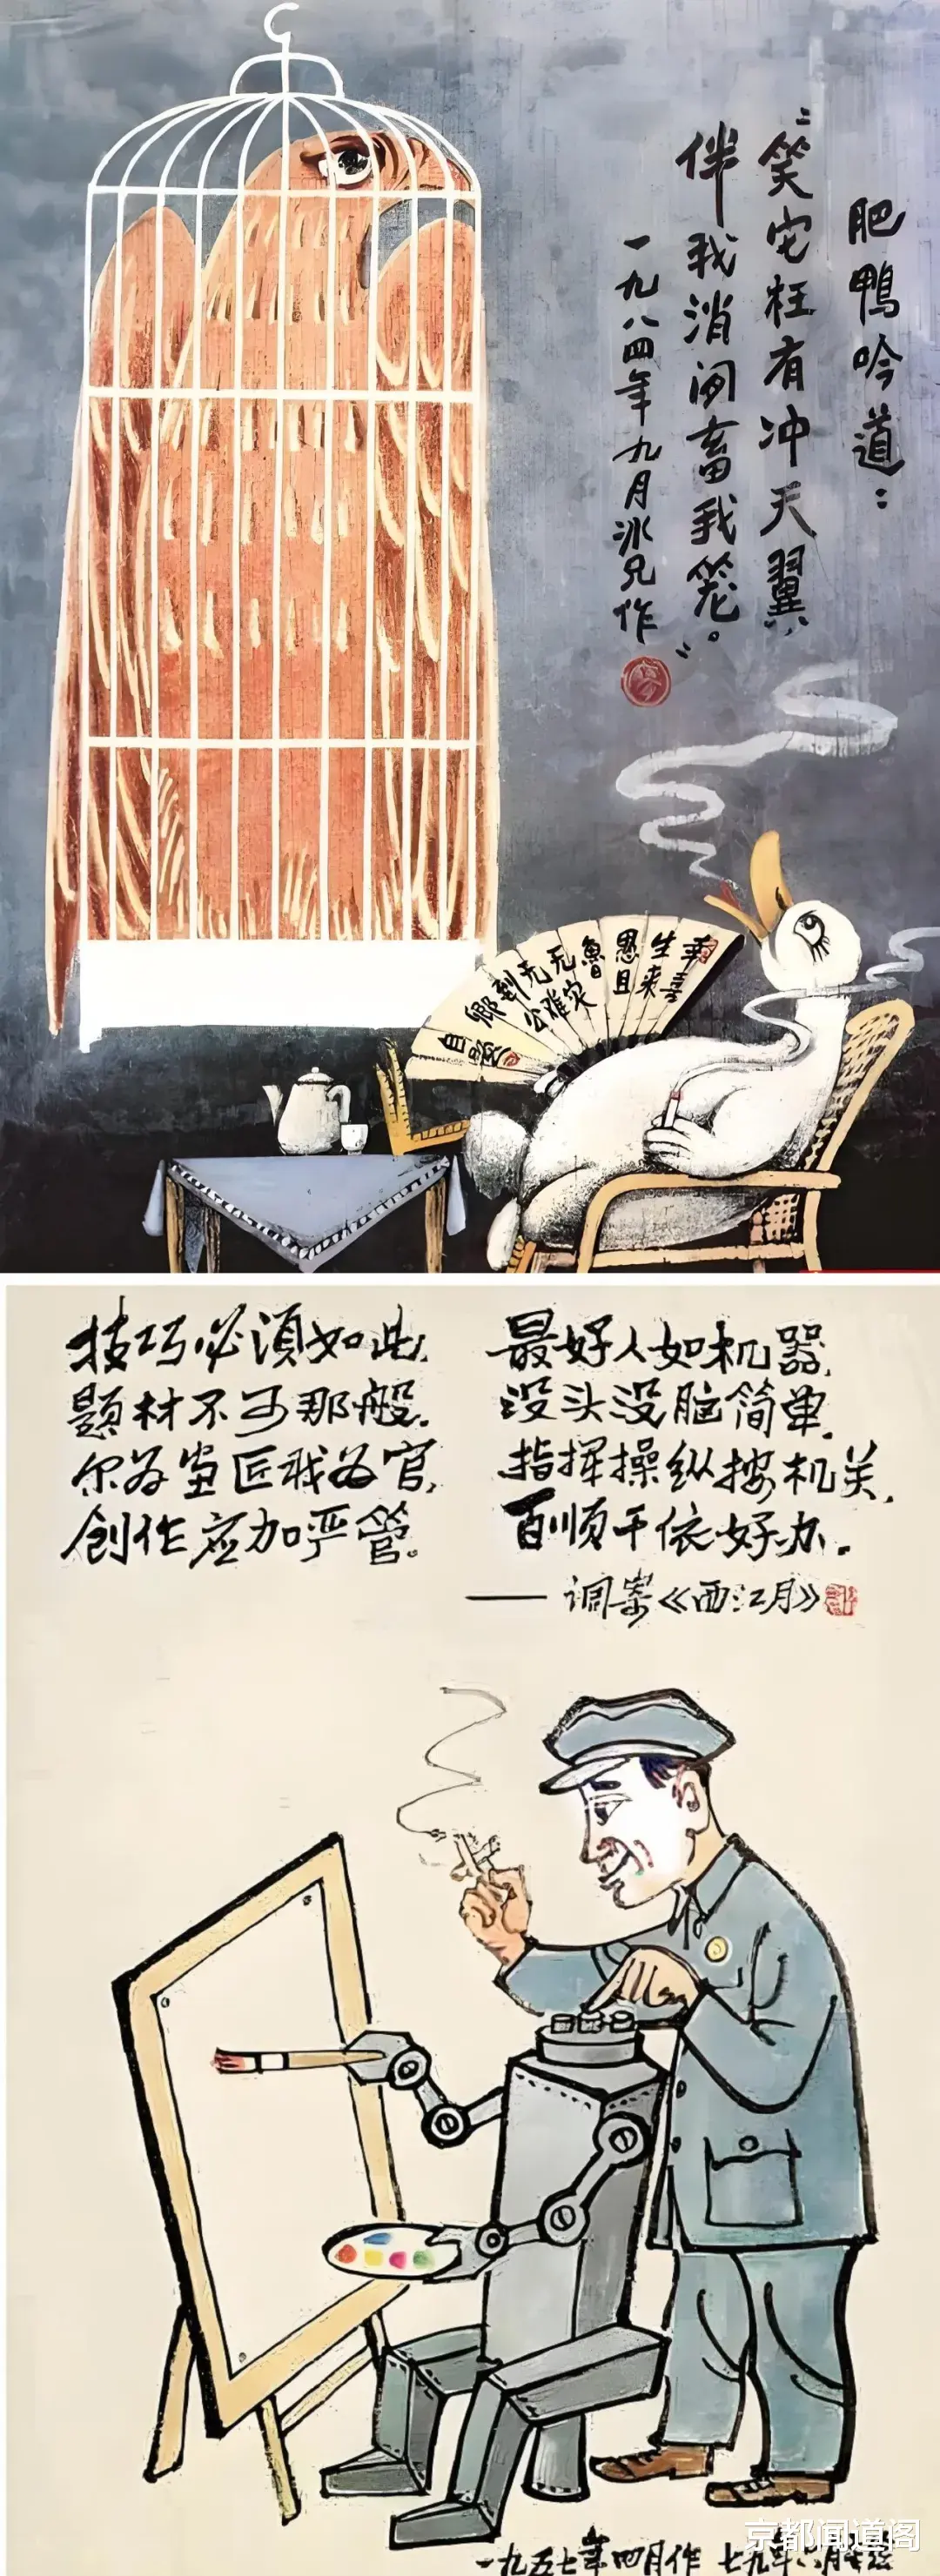 肥鸭吟道：
“笑它枉有冲天翼，
伴我消闲畜我笼”。
一九八四年九月冰兄作
幸喜
生来
愚且
鲁
无灾
无难
到公
卿
自颂
最好人如机器，
没头没脑简单。
指挥操纵按机关，
百顺千依好办。
技巧必须如此，
题材不可那般。
尔为画匠我为官，
创作应加严管。
——调寄《西江月》
一九五七年四月作 七九年六月
京都闻道阁